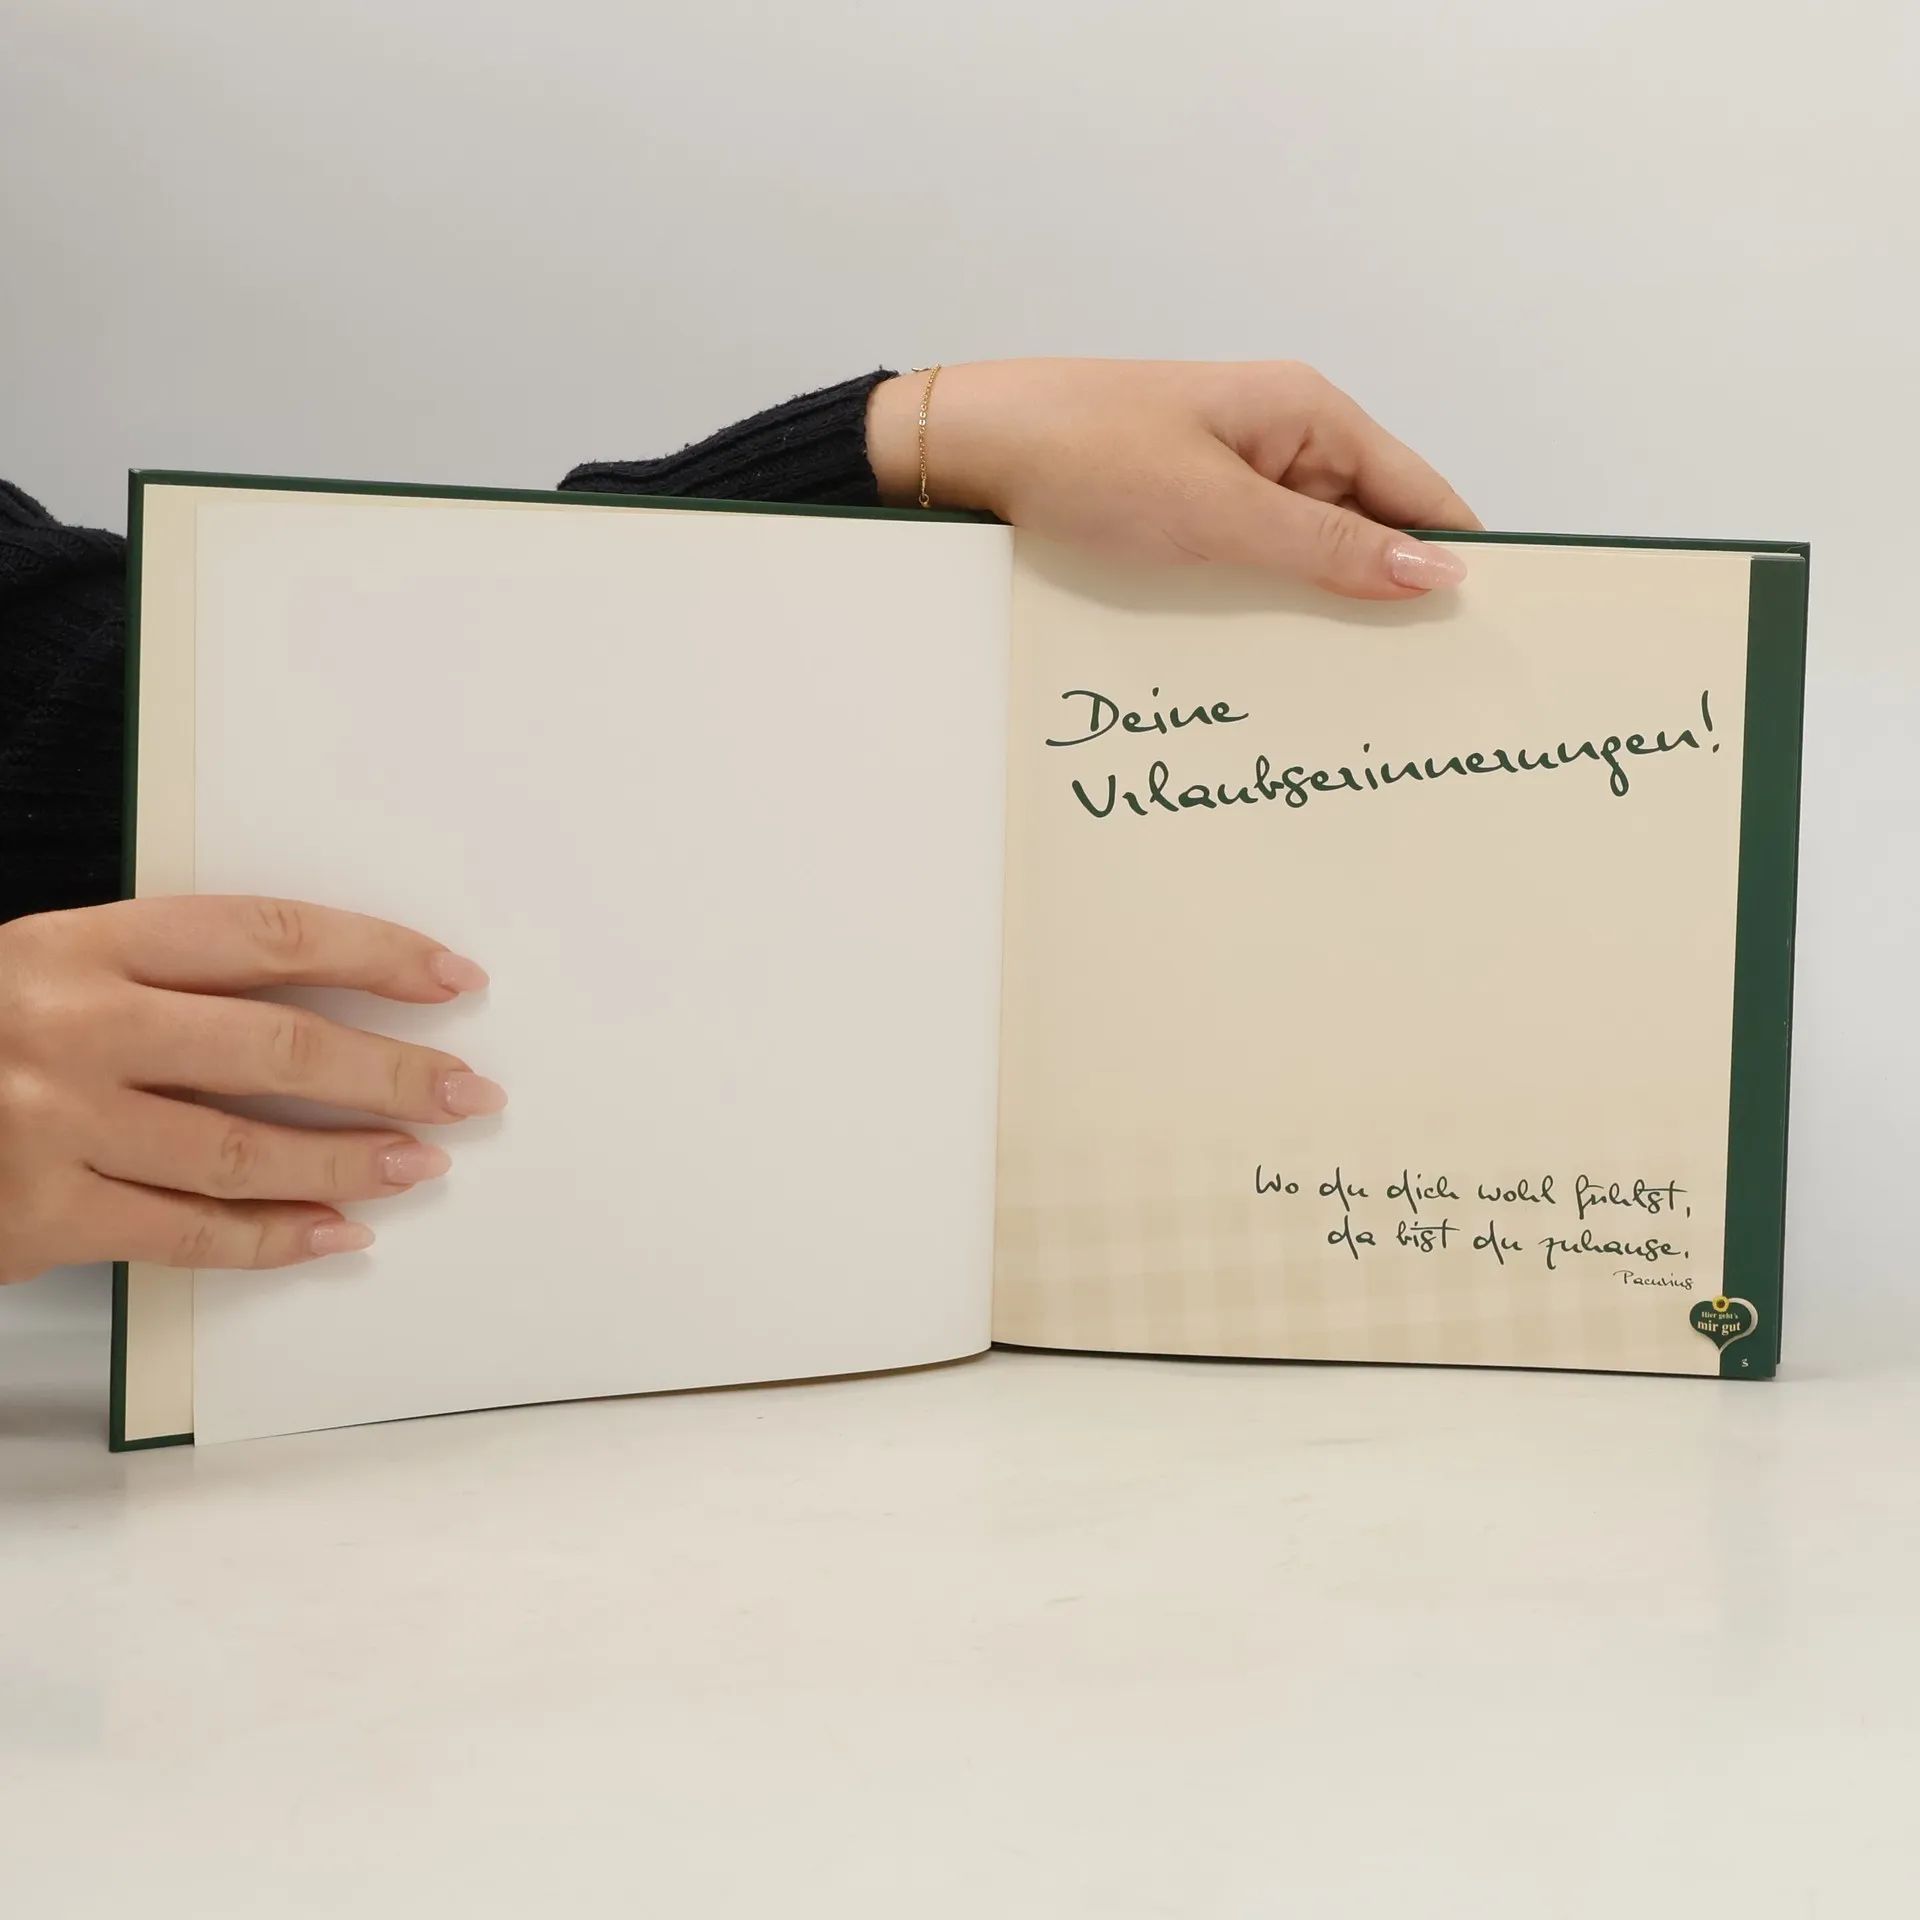 Deine
Urlaubserinnerungen!
Wo du dich wohl fühlst,
da bist du zuhause.
Pacuvius
Hier geht's
mir gut
3